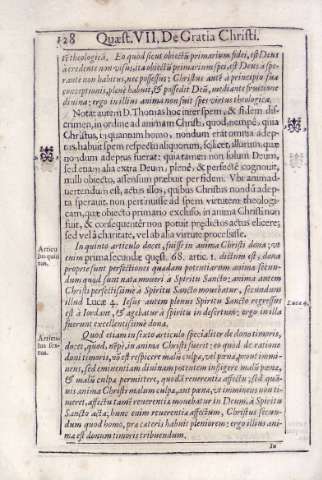 128 Quæst. VII. De Gratia Christi.
tē theologicā. Eo quòd sicut obiectū primarium fidei, est Deus
à credente non visus, ita obiectū primarium spei, est Deus à spe-
rante non habitus, nec possessus: Christus autē à principio suæ
conceptionis, plenè habuit, & possedit Deū, mediante fruitione
divina: ergo in illius anima non fuit spes virtus theologica.
Notat autem D. Thomas hoc inter spem, & fidem dis-
crimen, in ordine ad animam Christi, quòd nempè, quia
Christus, in quantum homo, nondum erat omnia adep-
tus, habuit spem respectu aliquorum, scilicet, illorum, quæ
nondum adeptus fuerat: quia tamen non solum Deum,
sed etiam alia extra Deum, plenè, & perfectè cognovit,
nulli obiecto, assensum præbuit per fidem. Vbi animad-
vertendum est, actus illos, quibus Christus nondū adep-
ta sperauit, non pertinuisse ad spem virtutem theologi-
cam, quæ obiecto primario exclusa in anima Christi non
fuit, & consequenter non potuit prædictos actus elicere;
sed vel à charitate, vel ab alia virtute processisse.
Articu
lus quin
tus.
In quinto articulo docet, fuisse in anima Christi dona; vt
enim prima secundæ quæst. 68. artic. 1. dictum est, dona
propriè sunt perfectiones quædam potentiarum animæ secun-
dum quod sunt natæ moueri à Spiritu Sancto: anima autem
Christi perfectissimè à Spiritu Sancto mouebatur, secundum
illud Lucæ 4. Iesus autem plenus Spiritu Sancto regressus
est à Iordane, & agebatur à spiritu in desertum: ergo in illa
fuerunt excellentissimè dona.
Lucæ 4.
Articu-
lus sex-
tus.
Quod etiam in sexto articulo specialiter de dono timoris,
docet, quod, nēpè, in anima Christi fuerit: eo quòd de ratione
doni timoris, nō est respicere malū culpæ, vel pœnæ, prout immi-
nens, sed eminentiam diuinam potentem infligere malū pœnæ,
& malū culpæ permittere, quadā reuerentiæ affectu; sed quā-
uis anima Christi malum culpæ, aut pœnæ, vt imminens non ti-
meret, affectu tamē reuerentiæ mouebatur in Deum, à Spiritu
Sancto acta; hunc enim reuerentiæ affectum, Christus secun-
dum quod homo, præ cæteris habuit pleniorem: ergo illius ani-
ma est donum timoris tribuendum.
In